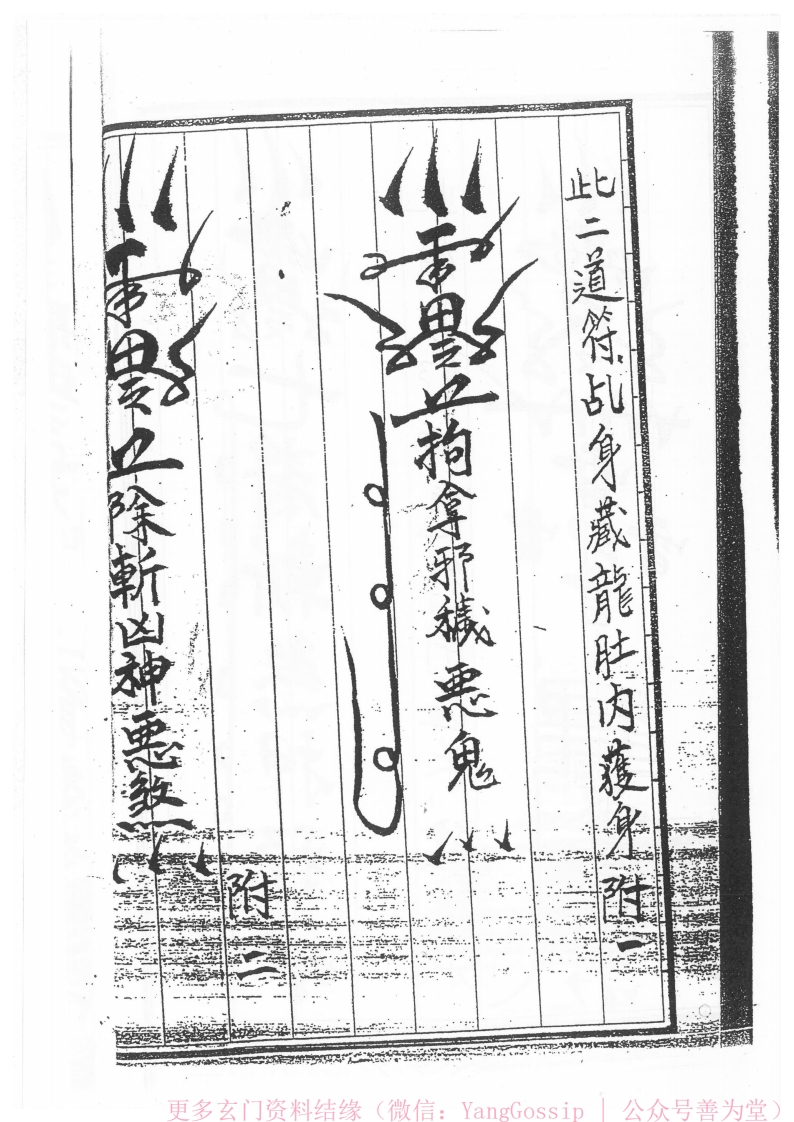 此二道符乩身藏龍肚内獲身 附一
拘拿邪穢悪鬼
附二
除斬凶神悪煞
更多玄门资料结缘（微信：YangGossip | 公众号善为堂）